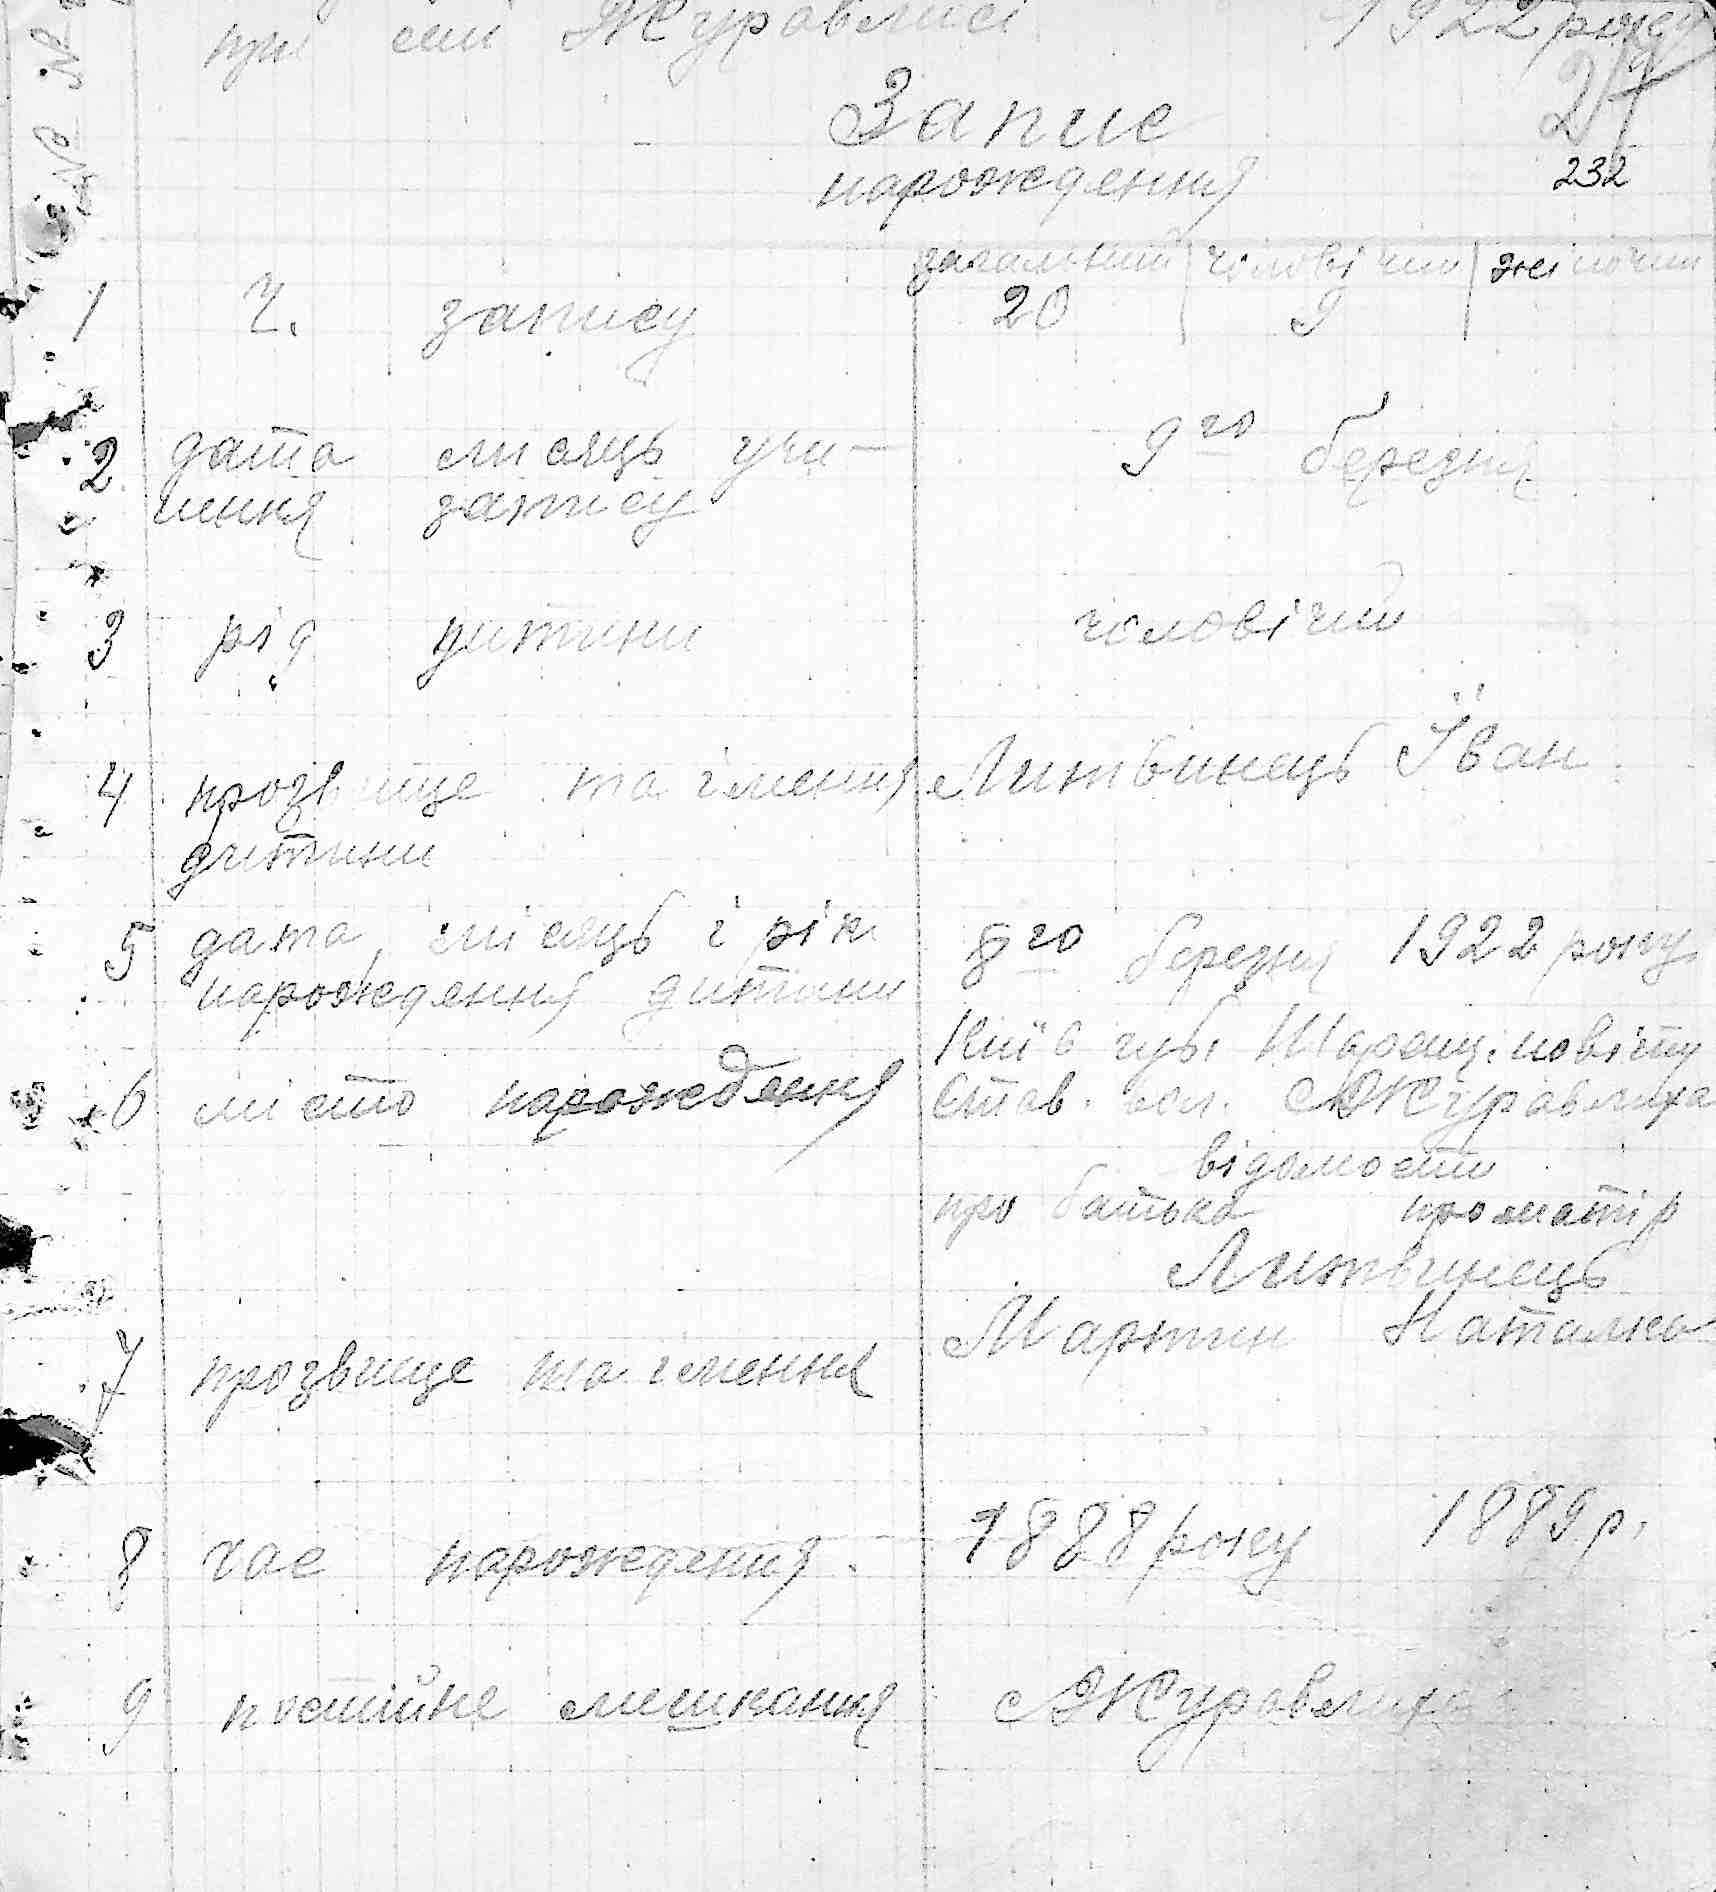 при селі Журавлисі 1922 року
27
Запис
нарождення
232
загальний чоловічий жіночий
1 Ч. запису 20 9
2 дата місяць учи- 9го березня
нення запису
3 рід дитини чоловічий
4 прозвище та імення Литвинець Їван
дитини
5 дата, місяць і рік 8го березня 1922 року
нарождення дитини
Київ губ. повіту
6 місто нарождення Став. вол. с Журавлиха
відомости
про батька про матір
Литвинець
Мартин Наталка
7 прозвище та імення
8 час нарождення. 1888 року 1889 р.
9 постійне мешкання с Журавлиха